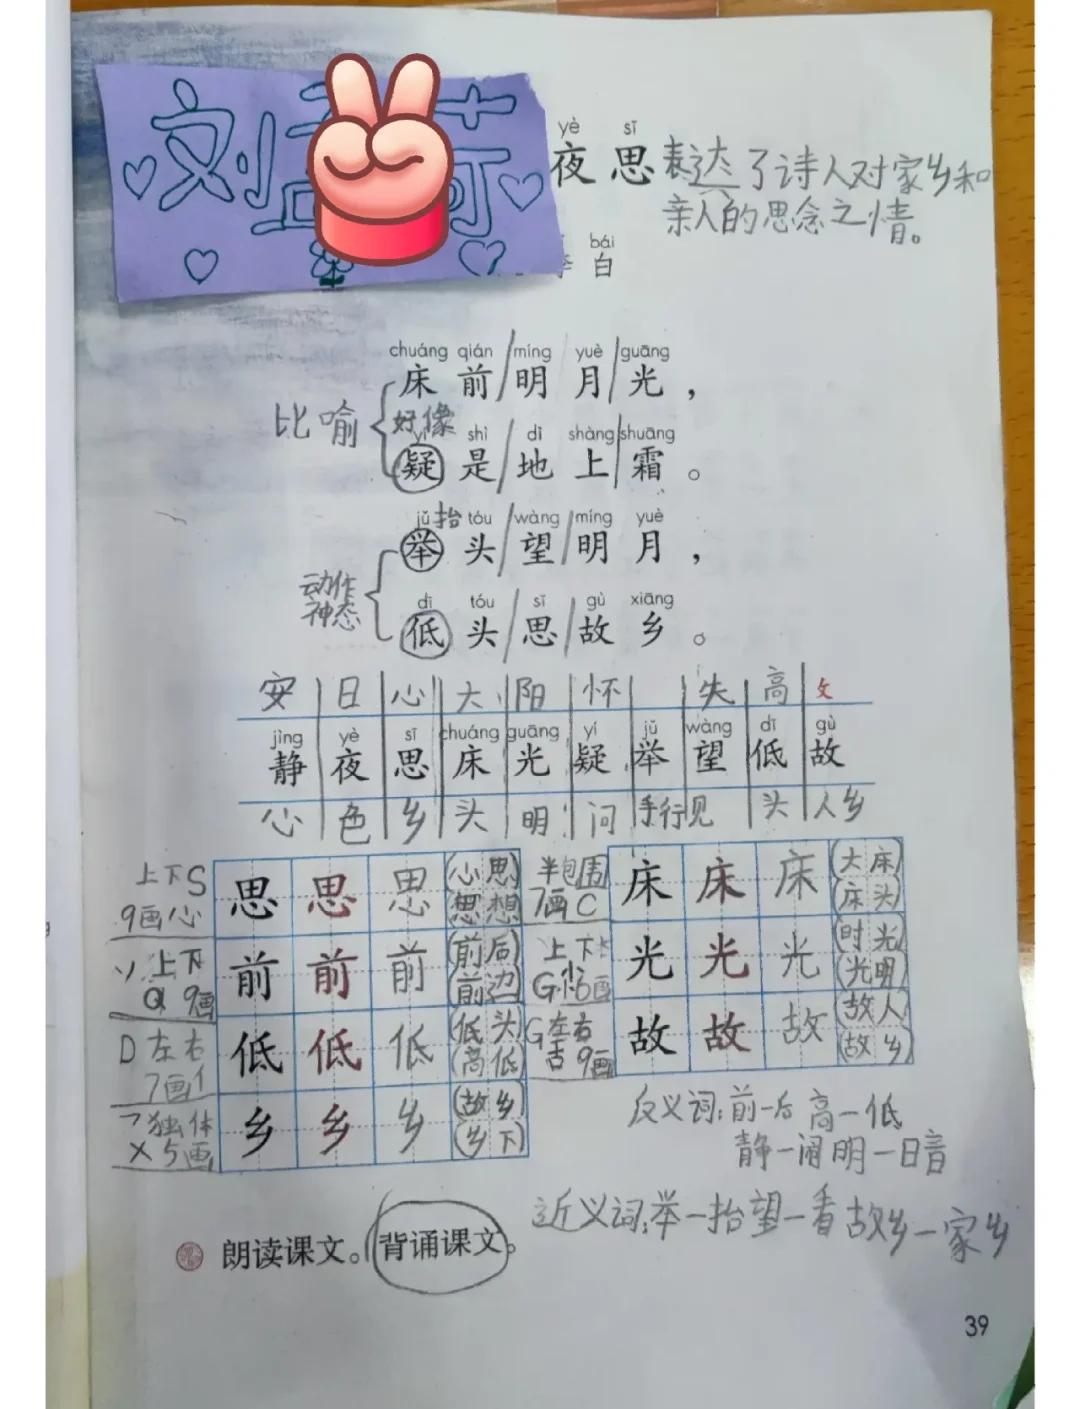 刘
yè sī
夜思 表达了诗人对家乡和
亲人的思念之情。
bái
白
chuáng qián míng yuè guāng
床前/明月/光，
比喻 好像
yí shì dì shàng shuāng
疑是/地上/霜。
jǔ 抬 tóu wàng míng yuè
举头/望/明月，
动作
神态
dī tóu sī gù xiāng
低头/思/故乡。
安 日 心 大 阳 怀 失 高 攵
jìng yè sī chuáng guāng yí jǔ wàng dī gù
静 夜 思 床 光 疑 举 望 低 故
心 色 乡 头 明 问 手行见 头 人乡
上下 S
9画 心
思 思 思 (心思)
(思想)
半包围
7画 C
床 床 床 (大床)
(床头)
丷 上下
Q 9画
前 前 前 (前后)
(前边)
上下
G 6画
光 光 光 (时光)
(光明)
D 左右
7画 亻
低 低 低 (低头)
(高低)
G 左右
古 9画
故 故 故 (故人)
(故乡)
独体
X 5画
乡 乡 乡 (故乡)
(乡下)
反义词：前—后 高—低
静—闹 明—日音
近义词：举—抬 望—看 故乡—家乡
朗读课文。背诵课文。
39